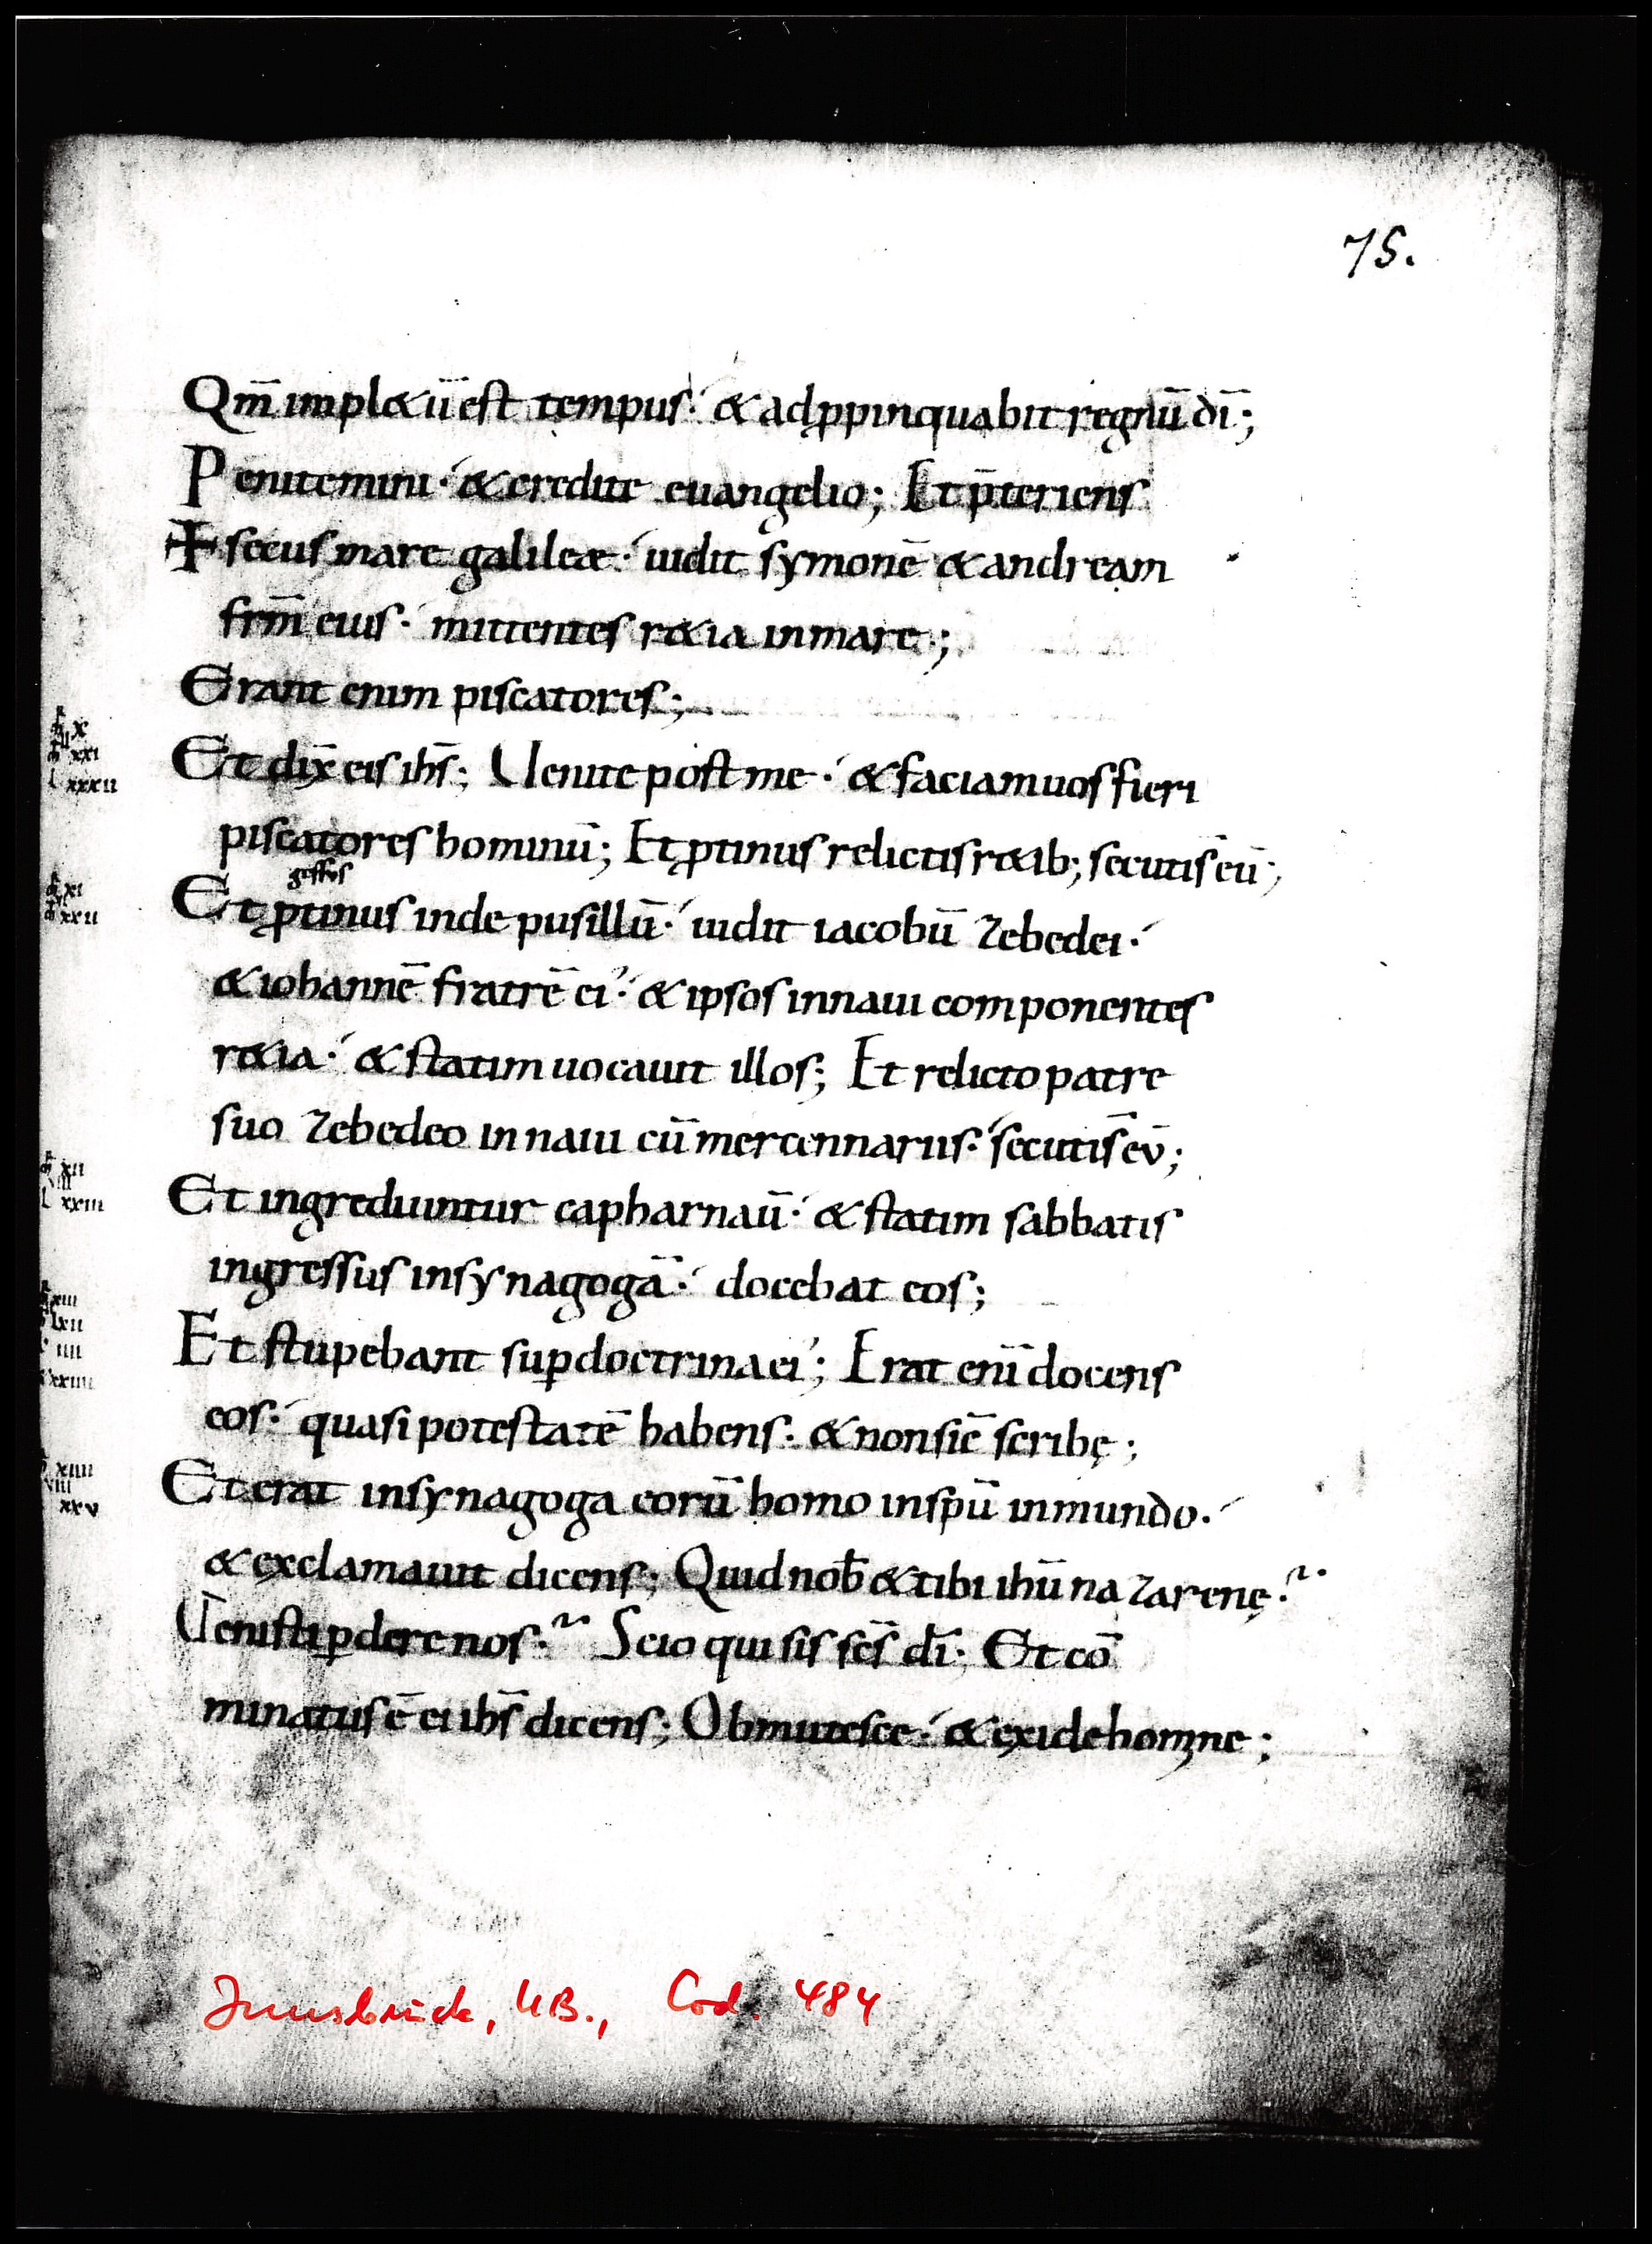 75.
Qm̄ impl&ū est tempus· & adꝓpinquabit regnū dī;
Penitemini· & credite euangelio; Et p̄teriens
secus mare galileæ· uidit symonē & andream
frm̄ eius· mittentes r&ia inmare·;
Erant enim piscatores;
Et dix̄ eis ihs̄; Uenite post me· & faciam uos fieri
piscatores hominū; Et ꝓtinus relictis r&ib; secuti s̄ eū;
gressus
Et ꝓtinus inde pusillū· uidit iacobū zebedei·
& iohannē fratrē ei᾽· & ipsos innaui componentes
r&ia· & statim uocauit illos; Et relicto patre
suo zebedeo in naui cū mercennariis· secuti s̄ ev̄;
Et ingrediuntur capharnaū· & statim sabbatis
ingressus insynagogā· docebat eos;
Et stupebant suꝑ doctrina ei᾽; Erat enī docens
eos· quasi potestatē habens· & non sic̄ scribę;
Et erat insynagoga eorū homo inspū inmundo·
& exclamauit dicens; Quid nob̄ & tibi ihū nazarenę·
Uenisti ꝑdere nos· Scio qui sis scs̄ dī· Et cō
minatus ē ei ihs̄ dicens; Obmutesce· & exi de homine;
x
xxi
l xxxii
xi
xxii
xii
l xxiii
xiii
lxii
iiii
xxiiii
xiiii
viii
xxv
Innsbruck, UB., Cod. 484